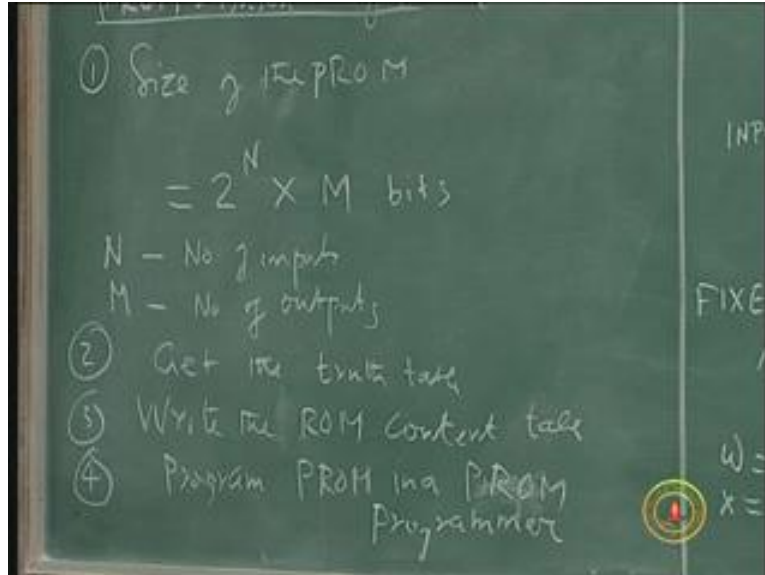 ① Size of the PROM
= 2^N X M bits
N - No of inputs
M - No of outputs
② Get the truth table
③ Write the ROM content table
④ Program PROM in a PROM
Programmer
INP
FIXE
W =
X =